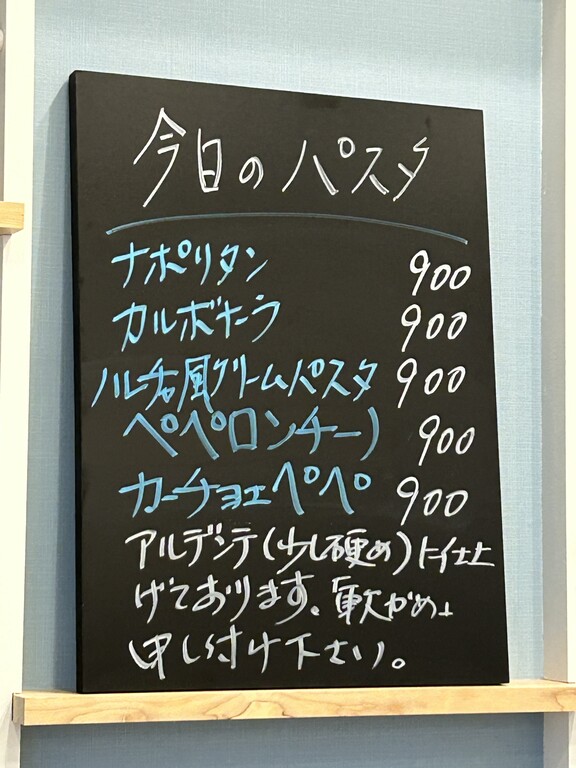 今日のパスタ
ナポリタン 900
カルボナーラ 900
ノルチャ風クリームパスタ 900
ペペロンチーノ 900
カーチョエペペ 900
アルデンテ(少し硬め)に仕上
げております。「軟かめ」
申し付け下さい。